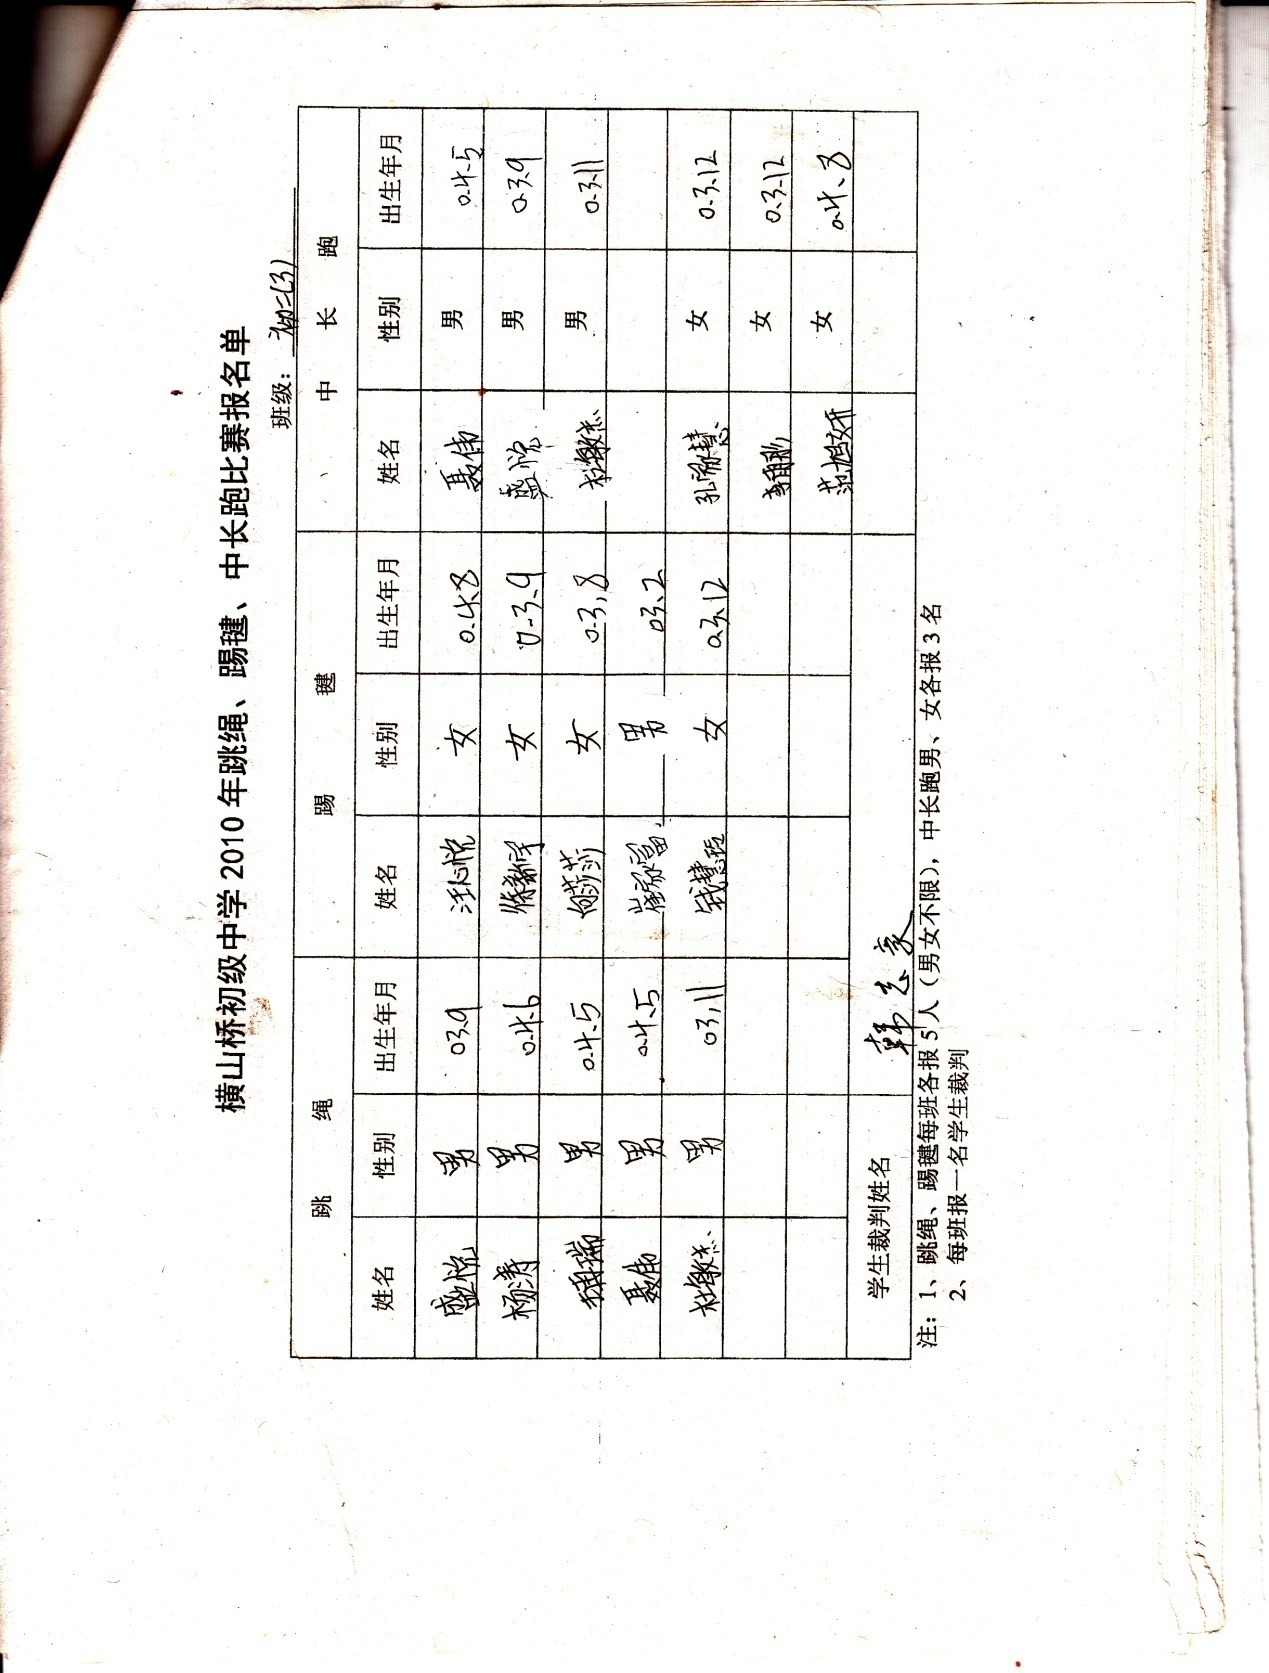 横山桥初级中学2010年跳绳、踢毽、中长跑比赛报名单
班级：初二(3)
跳 绳 踢 毽 中 长 跑
姓名 性别 出生年月 姓名 性别 出生年月 姓名 性别 出生年月
盛悦 男 03.9 汪心悦 女 0.4.8 聂伟 男 0.4.5
杨涛 男 0.4.6 女 0.3.9 盛悦 男 0.3.9
男 0.4.5 女 0.3.8 杜敏杰 男 0.3.11
聂伟 男 0.4.5 男 03.2
杜敏杰 男 03.11 女 0.3.12 女 0.3.12
女 0.3.12
范旭妍 女 0.4.8
学生裁判姓名 韩志豪
注：1、跳绳、踢毽每班各报5人（男女不限），中长跑男、女各报3名
2、每班报一名学生裁判